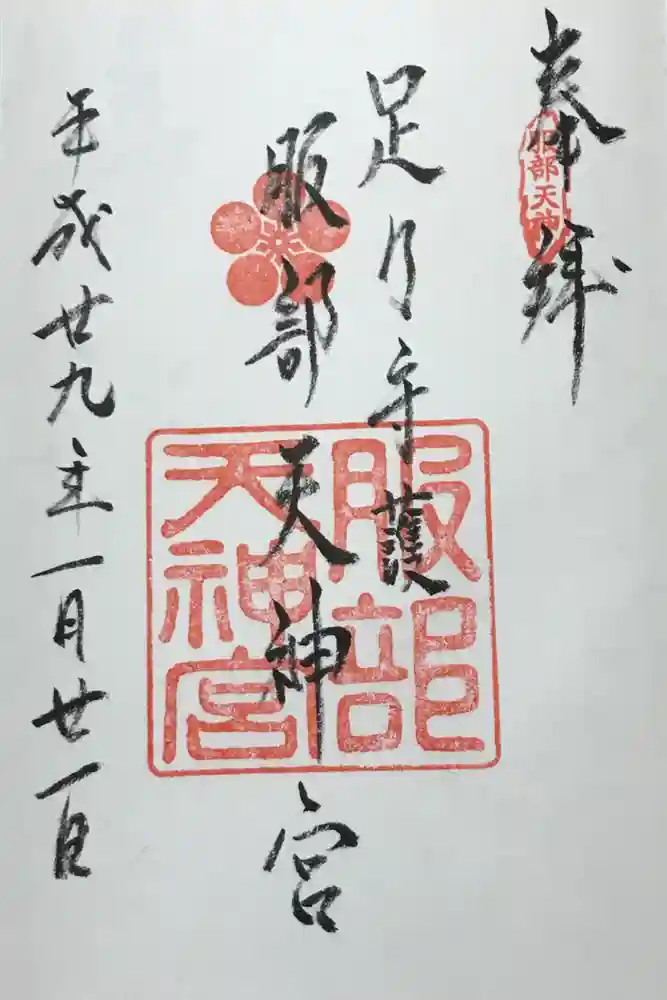 奉拝
服部天神
足の守護
服部天神宮
服部
天神宮
平成廿九年一月廿一日